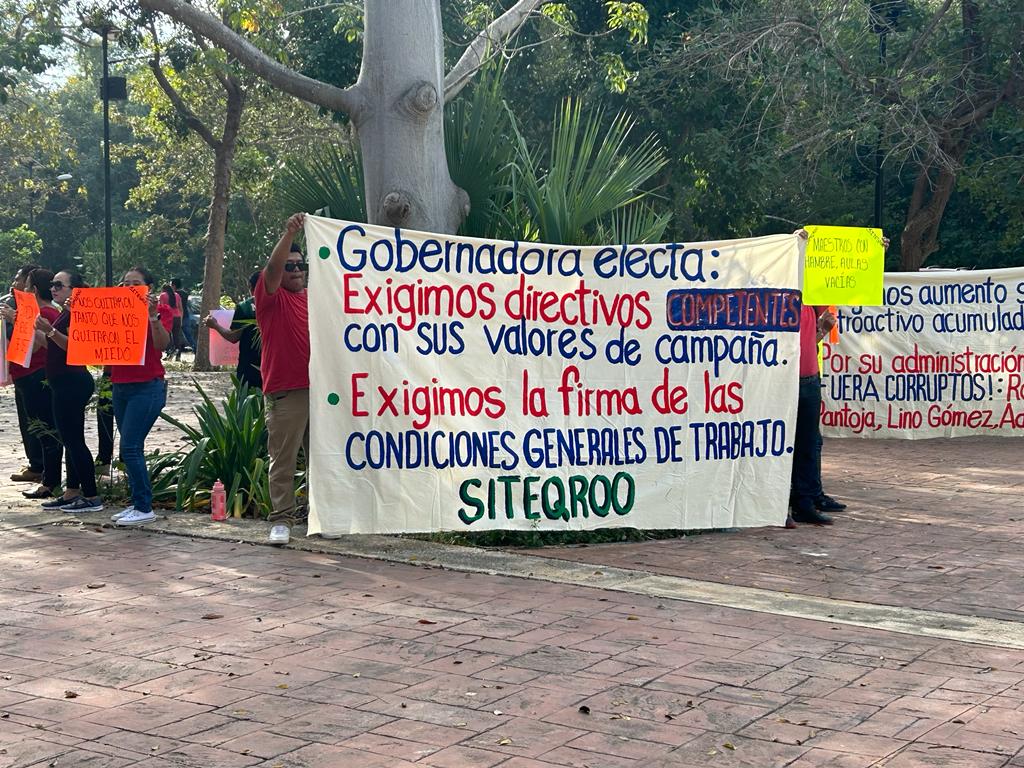 Gobernadora electa:
Exigimos directivos COMPETENTES
con sus valores de campaña.
Exigimos la firma de las
CONDICIONES GENERALES DE TRABAJO.
SITEQROO
NOS QUITARON
TANTO QUE NOS
QUITARON EL
MIEDO
MAESTROS CON
HAMBRE, AULAS
VACÍAS
mos aumento s
troactivo acumulad
Por su administración
FUERA CORRUPTOS!: R
Pantoja, Lino Gómez, Ad